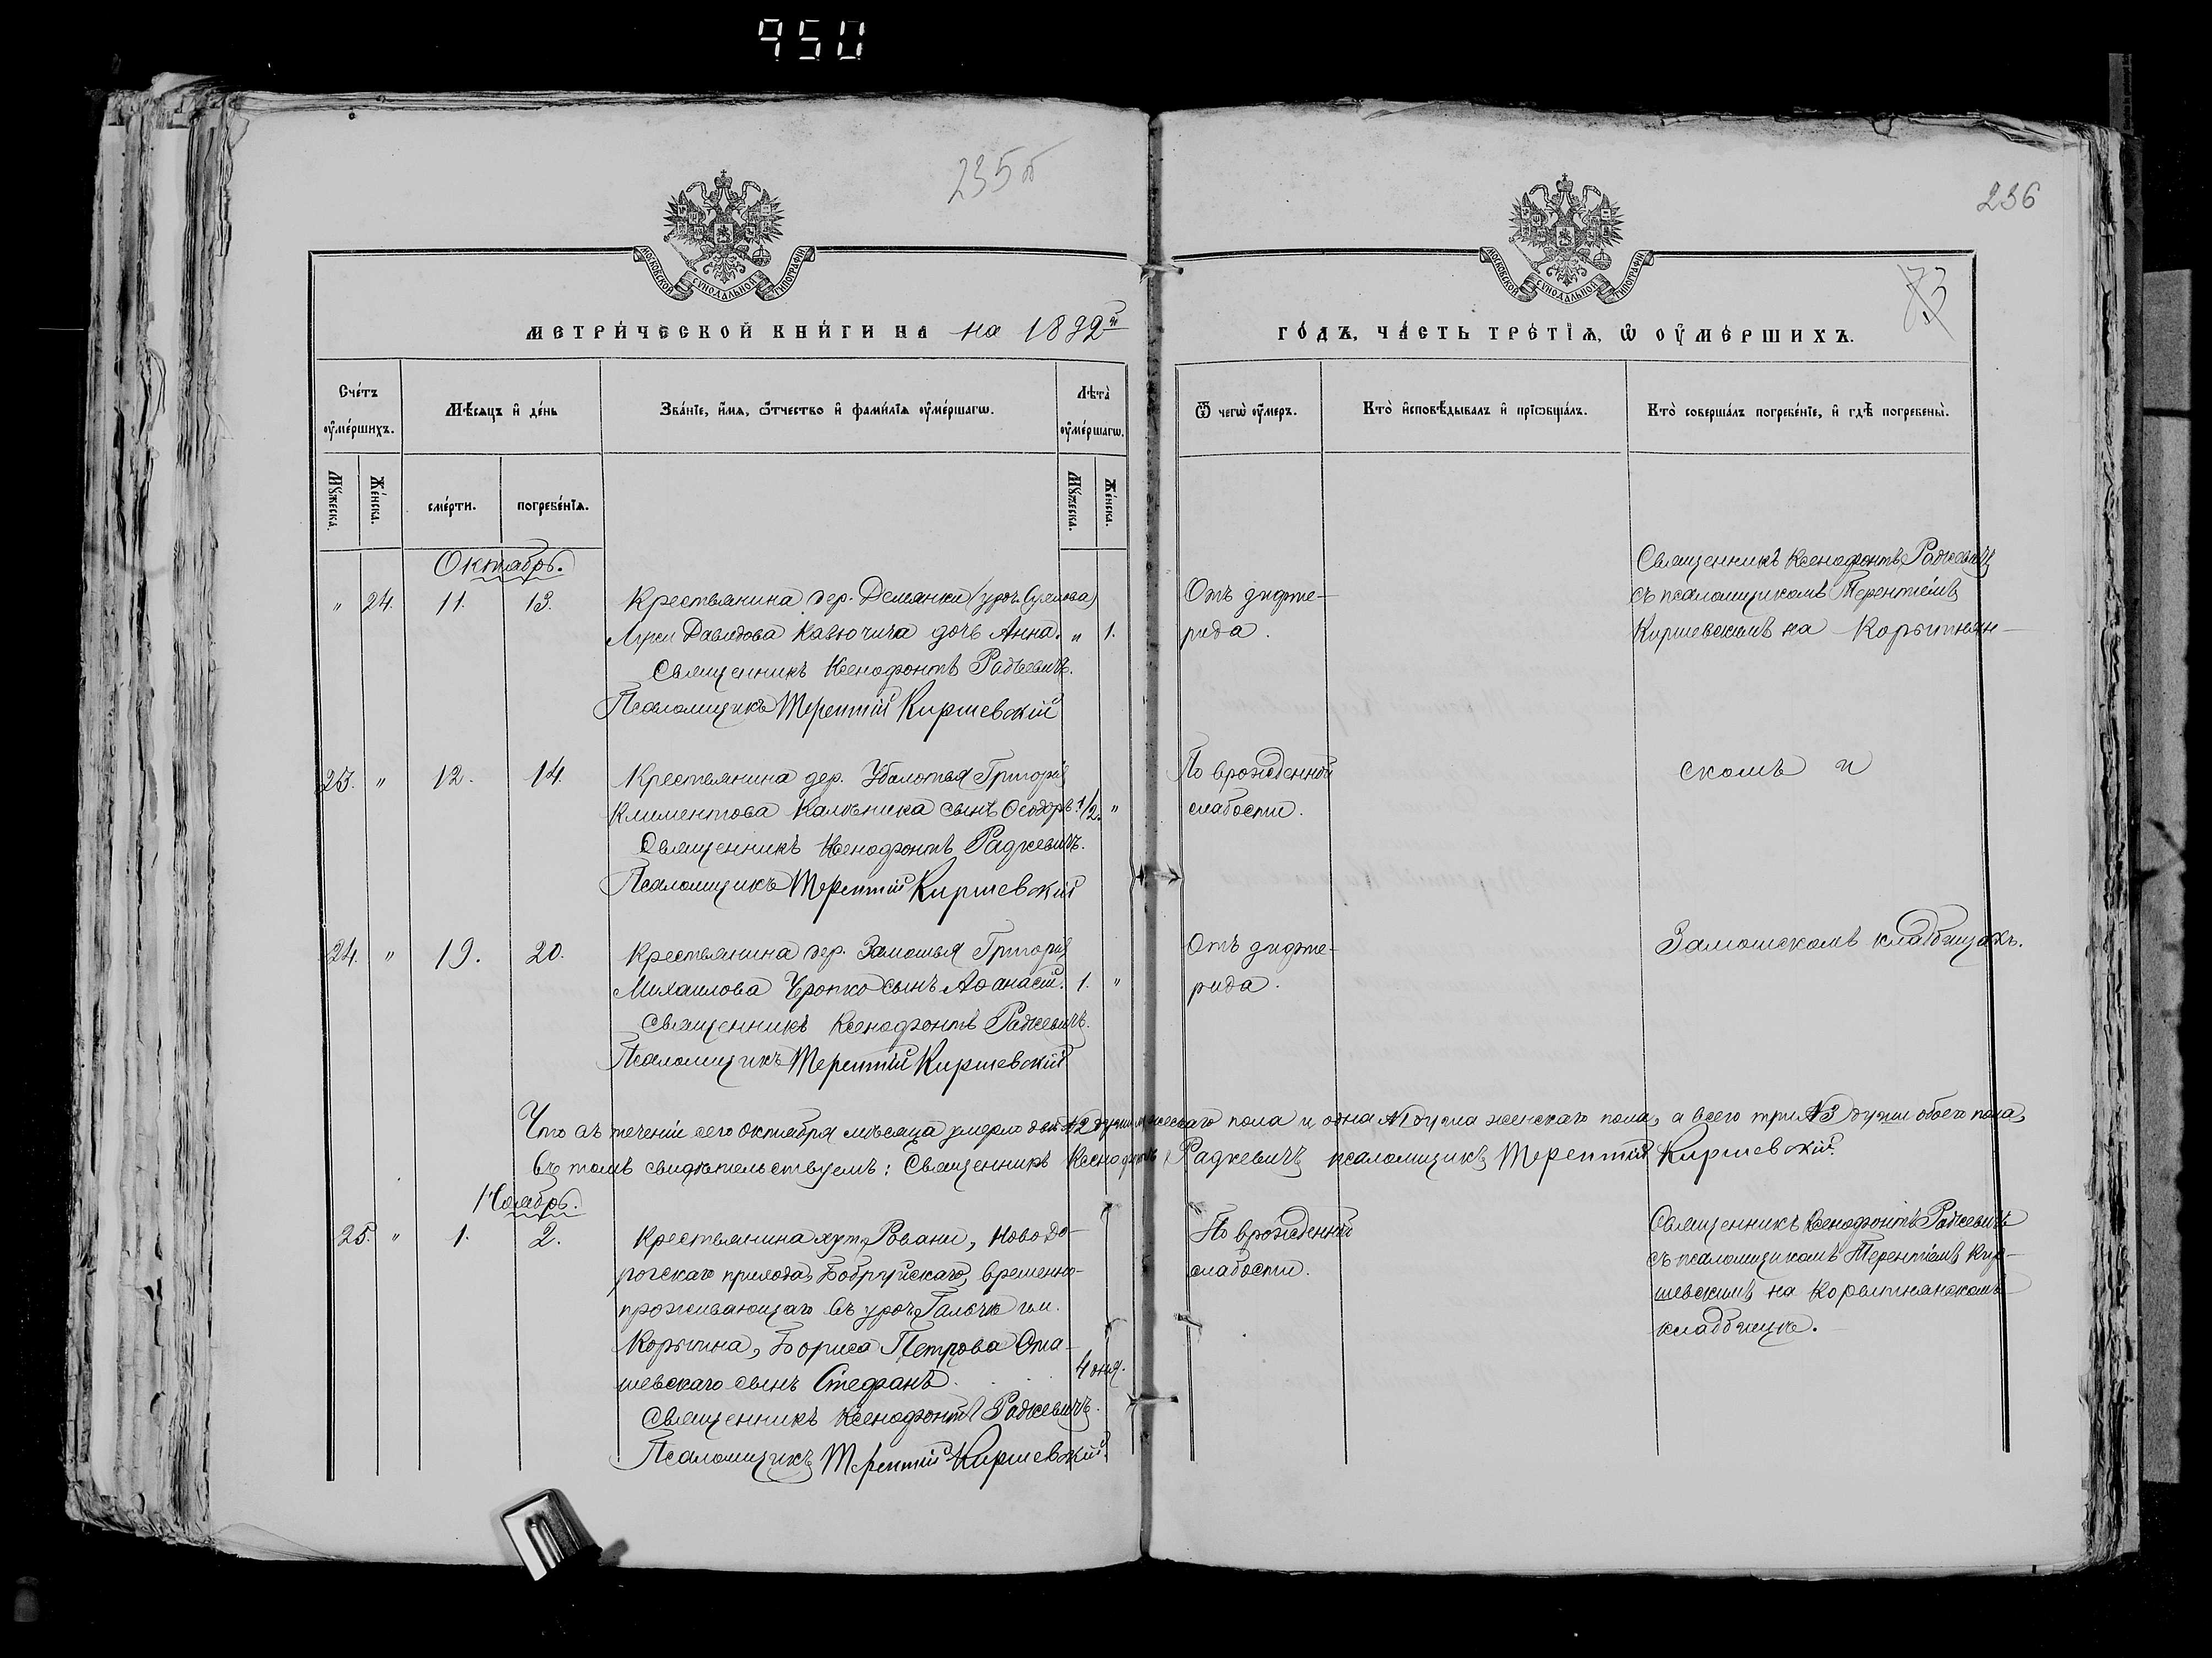 950
235 об
236
73
МОСКОВСКОЙ СѴНОДАЛЬНОЙ ТИПОГРАФІИ
МОСКОВСКОЙ СѴНОДАЛЬНОЙ ТИПОГРАФІИ
МЕТРИ́ЧЕСКОЙ КНИ́ГИ НА на 1892й
ГО́ДЪ, ЧА́СТЬ ТРЕ́ТІѦ, Ѡ҆ ОУ҆МЕ́РШИХЪ.
Сче́тъ оу҆ме́ршихъ.
Мѣ́сѧцъ и҆ де́нь
Зва́нїе, и҆́мѧ, ѻ҆́тчество и҆ фами́лїѧ оу҆ме́ршагѡ.
Лѣта̀ оу҆ме́ршагѡ.
Ѿ чегѡ̀ оу҆́меръ.
Кто̀ и҆сповѣ́дывалъ и҆ прїѡбща́лъ.
Кто̀ соверша́лъ погребе́нїе, и҆ гдѣ̀ погребены̀.
Мꙋ́жеска.
Же́нска.
сме́рти.
погребе́нїѧ.
Мꙋ́жеска.
Же́нска.
Октябрь.
" 24. 11. 13. Крестьянина дер. Демянки (уроч. )
Луки Давидова Кавючича дочь Анна. " 1.
Священникъ Ксенофонтъ Радкевичъ.
Псаломщикъ Терентій Киршевскій
Отъ дифте-
рида.
Священникъ Ксенофонтъ Радкевичъ
съ псаломщикомъ Терентіемъ
Киршевскимъ на Корытнян-
23. " 12. 14. Крестьянина дер. Уболотья Григорія
Климентова Калѣника сынъ Ѳеодоръ. 1/2. "
Священникъ Ксенофонтъ Радкевичъ.
Псаломщикъ Терентій Киршевскій
По врожденной
слабости.
скомъ и
24. " 19. 20. Крестьянина дер. Замошья Григорія
Михаилова Чропко сынъ Аѳанасій. 1. "
Священникъ Ксенофонтъ Радкевичъ.
Псаломщикъ Терентій Киршевскій
Отъ дифте-
рида.
Замошскомъ кладбищахъ.
Что въ теченіи сего октября мѣсяца умерло двѣ №2 души мужескаго пола и одна №1 душа женскаго пола, а всего три №3 души обоего пола,
въ томъ свидѣтельствуемъ: Священникъ Ксенофонтъ Радкевичъ псаломщикъ Терентій Киршевскій.
Ноябрь.
25. " 1. 2. Крестьянина хут. Ровани, Новодо-
рогскаго прихода, Бобруйскаго, временно-
проживающаго въ уроч. Галочка им.
Корытна, Бориса Петрова Ста-
шевскаго сынъ Стефанъ. 4 дня.
Священникъ Ксенофонтъ Радкевичъ.
Псаломщикъ Терентій Киршевскій.
По врожденной
слабости.
Священникъ Ксенофонтъ Радкевичъ
съ псаломщикомъ Терентіемъ Кир-
шевскимъ на Корытнянскомъ
кладбищѣ.